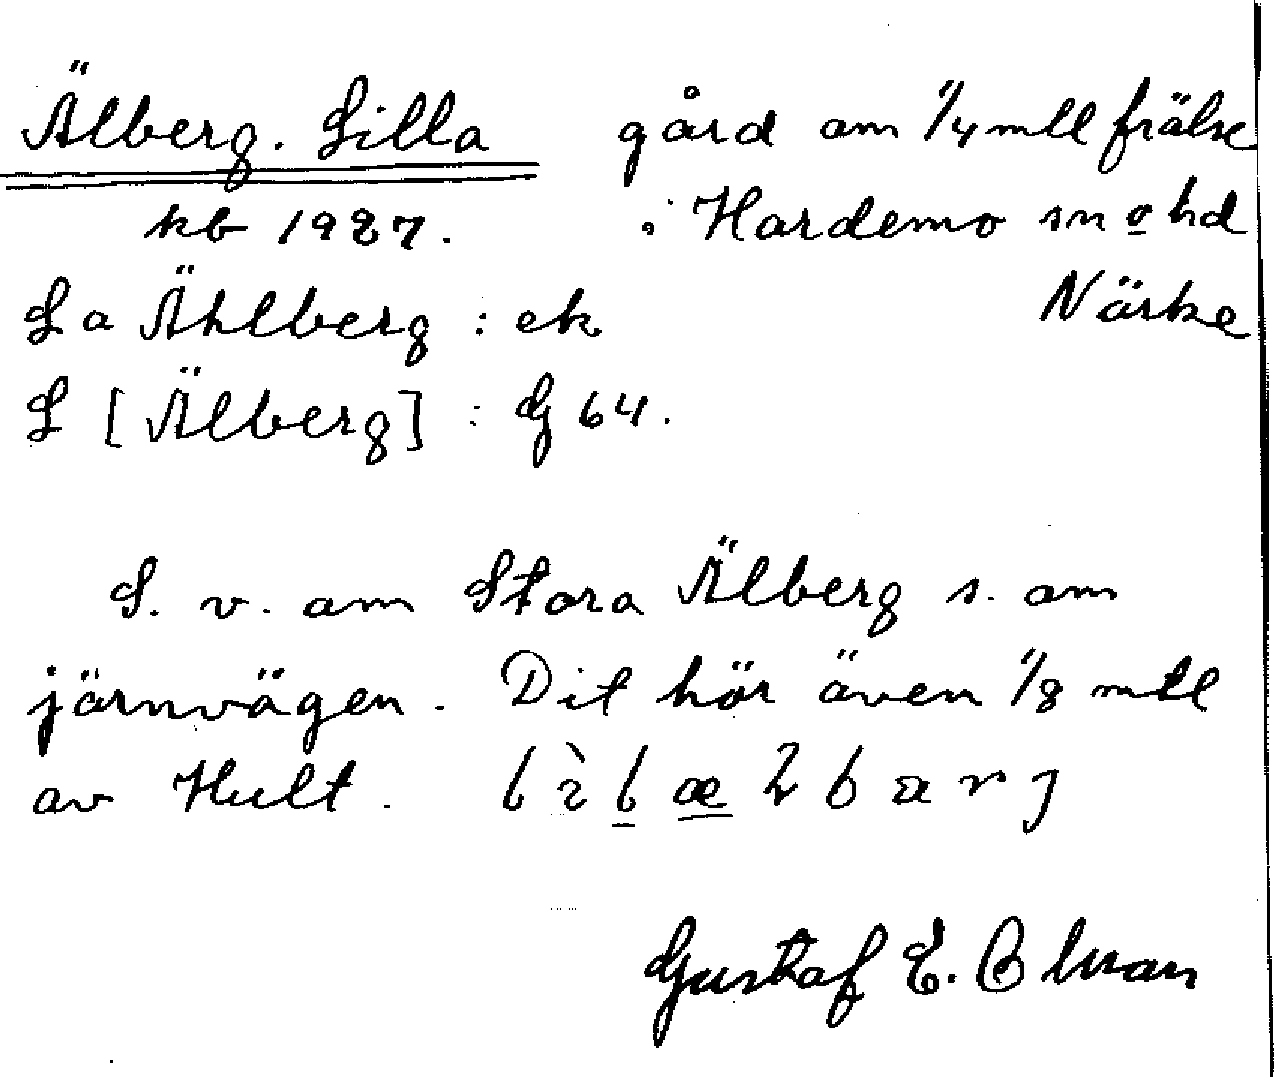 Älberg. Lilla gård om 1/4 mtl frälse
kb 1927. i Hardemo sn o hd
La Ählberg : ek Närke
L [Älberg] : G 64.
S. v. om Stora Älberg s. om
järnvägen. Dit hör även 1/8 mtl
av Hult.
Gustaf E. Olman